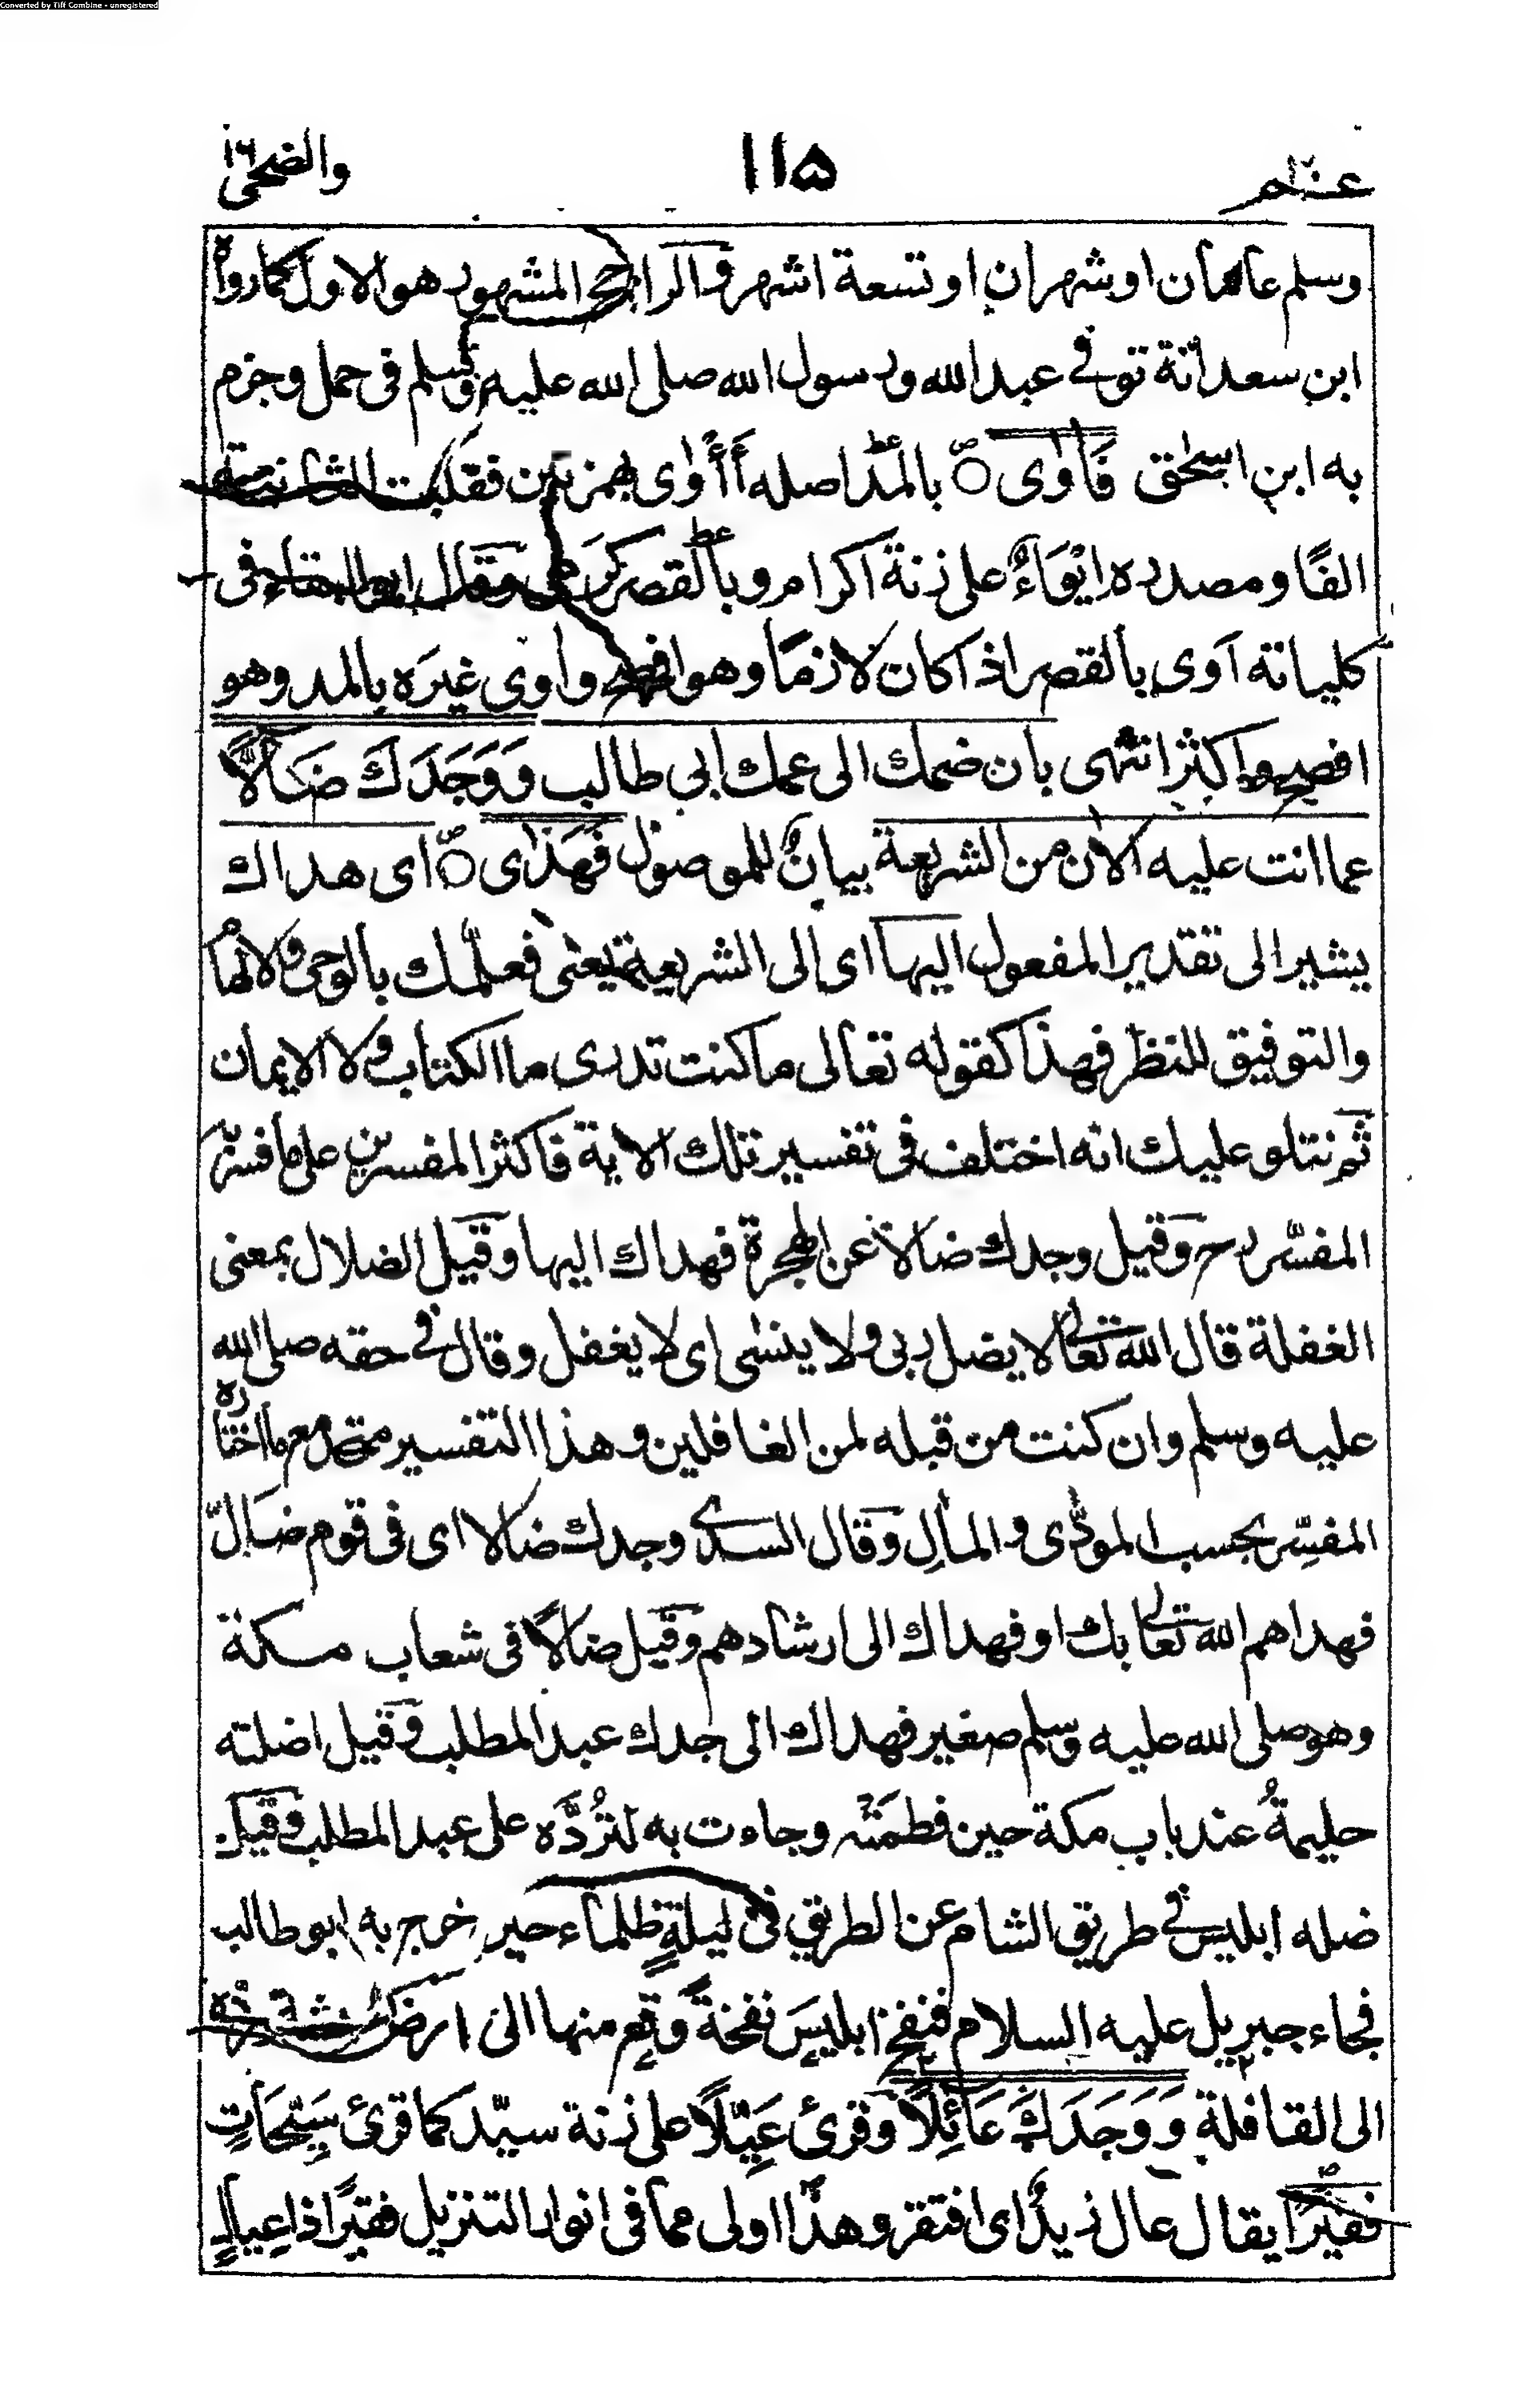 Converted by Tiff Combine - unregistered
عــم ١١٥ والضحى
وسلم عامان او شهران او تسعة اشهر والراجح المشهور هو الاول كما رواه
ابن سعد انه توفي عبد الله ورسول الله صلى الله عليه وسلم فى حمل وجزم
به ابن اسحٰق فَاٰوٰى بالمد اصله أَأْوٰى بهمزتين فقلبت الثانية
الفًا ومصدره اِيْوَاءٌ على زنة اكرام وبالقصر كرمى وقال ابو البقاء فى
كلياته آوى بالقصر اذا كان لازمًا وهو افصح واٰوى غيرَه بالمد وهو
افصح واكثر انتهى بان ضمك الى عمك ابي طالب وَوَجَدَكَ ضَالًّا
عما انت عليه الاٰن من الشريعة بيانٌ للموصول فَهَدٰى اى هداك
يشير الى تقدير المفعول اليها اى الى الشريعة يعنى فعلّمك بالوحى والالهام
والتوفيق للنظر فهذا كقوله تعالى ما كنت تدرى ما الكتاب ولا الايمان
ثم نتلو عليك انه اختلف فى تفسير تلك الاٰية فاكثر المفسرين على ما فسر به
المفسّر رح وقيل وجدك ضالا عن الهجرة فهداك اليها وقيل الضلال بمعنى
الغفلة قال الله تعالى لا يضل ربى ولا ينسٰى اى لا يغفل وقال في حقه صلى الله
عليه وسلم وان كنت من قبله لمن الغافلين وهذا التفسير متحد مع ما اختاره
المفسِّر بحسب المودّٰى والمآلِ وقال السدى وجدك ضالا اى فى قوم ضَالّ
فهداهم الله تعالى بك او فهداك الى ارشادهم وقيل ضالًّا فى شعاب مكة
وهو صلى الله عليه وسلم صغير فهداك الى جدك عبد المطلب وقيل اضلته
حليمةُ عند باب مكة حين فطمَتْه وجاءت به لتُردَّه على عبد المطلب وقيل
ضله ابليس في طريق الشام عن الطريق فى ليلةٍ ظلماء حين خرج به ابو طالب
فجاء جبريل عليه السلام فنفخ ابليسَ نفخةً وقع منها الى ارض
الى القافلة وَوَجَدَكَ عَائِلًا وقرئ عَيِّلًا على زنة سيّد كما قرئ سَيِّحَاتٍ
فقيرًا يقال عال زيدٌ اى افتقر وهذا اولى مما فى انوار التنزيل فقيرًا ذا عيالٍ